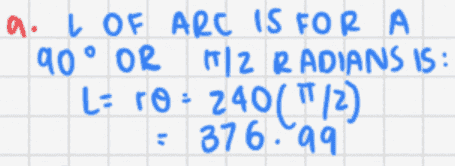 a. L OF ARC IS FOR A
90° OR π/2 RADIANS IS:
L = rθ = 240(π/2)
= 376.99